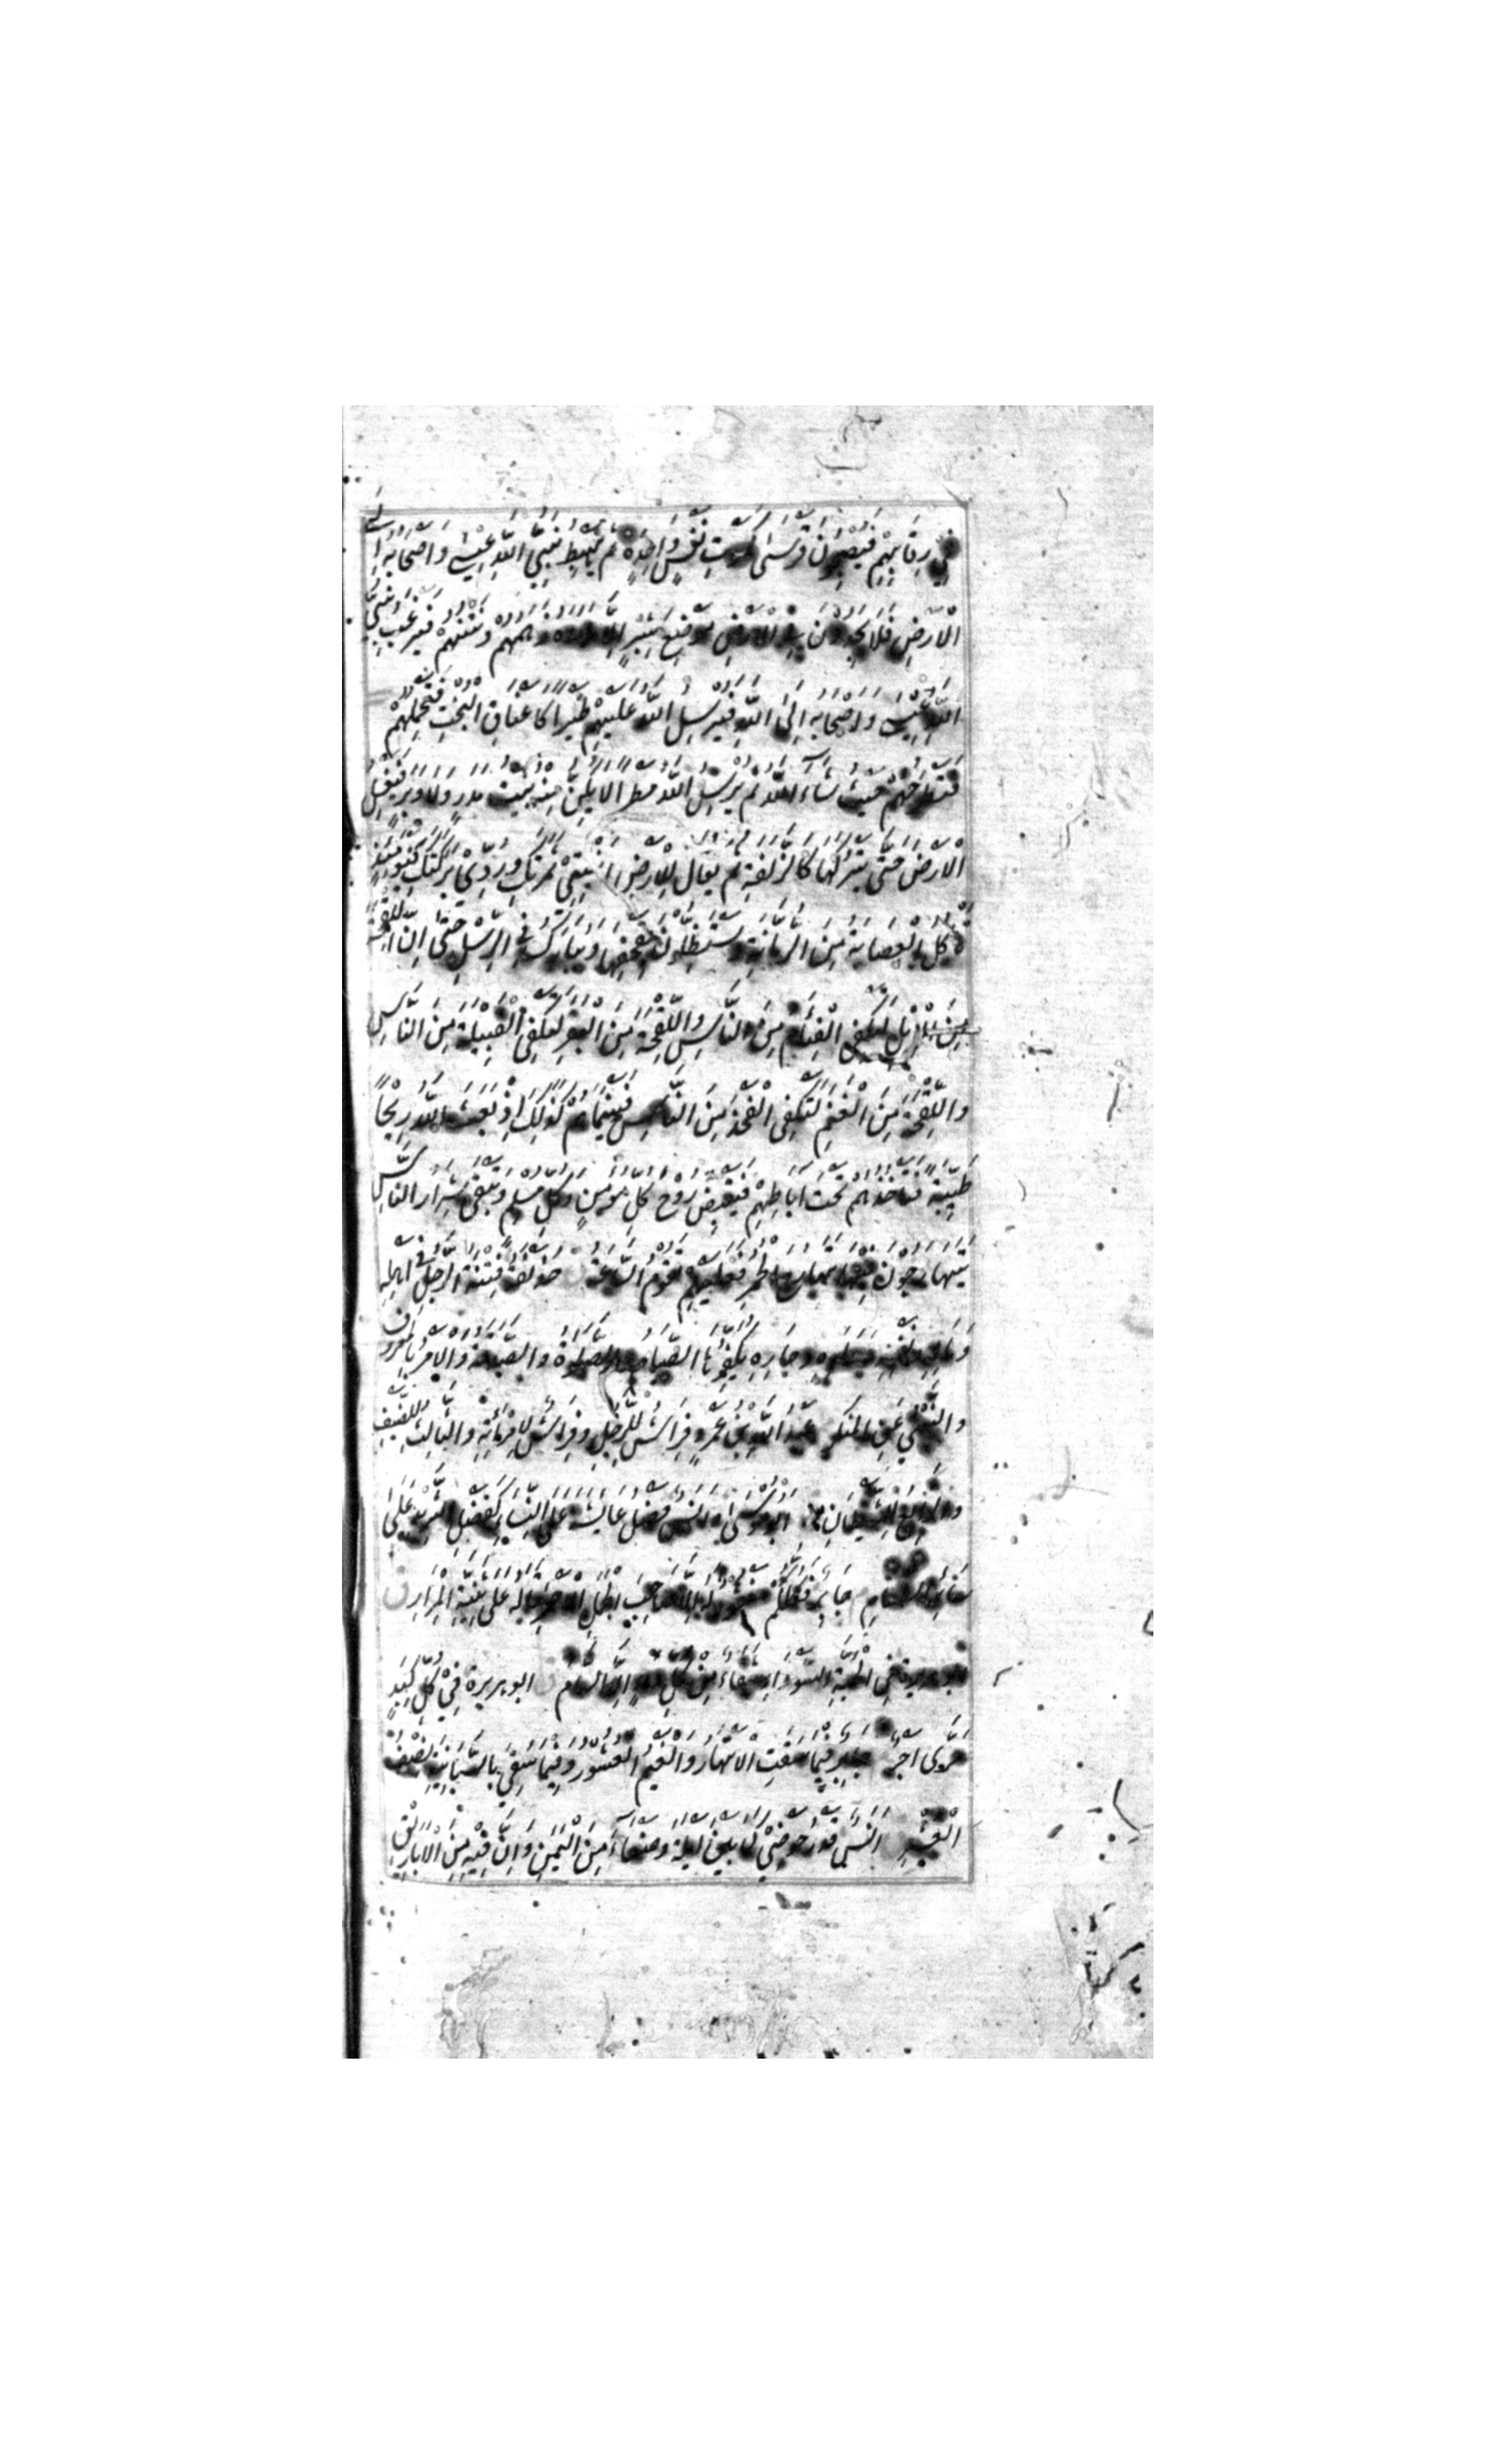 فِي رِقَابِهِمْ فَيُصْبِحُونَ فَرْسَى كَمَوْتِ نَفْسٍ وَاحِدَةٍ ثُمَّ يَهْبِطُ نَبِيُّ اللهِ عِيسَى وَاَصْحَابُهُ اِلَى
الْاَرْضِ فَلَا يَجِدُونَ فِي الْاَرْضِ مَوْضِعَ شِبْرٍ اِلَّا مَلَاَهُ زَهَمُهُمْ وَنَتْنُهُمْ فَيَرْغَبُ نَبِيُّ
اللهِ عِيسَى وَاَصْحَابُهُ اِلَى اللهِ فَيُرْسِلُ اللهُ عَلَيْهِمْ طَيْرًا كَاَعْنَاقِ الْبُخْتِ فَتَحْمِلُهُمْ
فَتَطْرَحُهُمْ حَيْثُ شَاءَ اللهُ ثُمَّ يُرْسِلُ اللهُ مَطَرًا لَا يَكُنُّ مِنْهُ بَيْتُ مَدَرٍ وَلَا وَبَرٍ فَيَغْسِلُ
الْاَرْضَ حَتَّى يَتْرُكَهَا كَالزَّلَفَةِ ثُمَّ يُقَالُ لِلْاَرْضِ اَنْبِتِي ثَمَرَتَكِ وَرُدِّي بَرَكَتَكِ فَيَوْمَئِذٍ
تَاْكُلُ الْعِصَابَةُ مِنَ الرُّمَّانَةِ وَيَسْتَظِلُّونَ بِقِحْفِهَا وَيُبَارَكُ فِي الرِّسْلِ حَتَّى اِنَّ اللِّقْحَةَ
مِنَ الْاِبِلِ لَتَكْفِي الْفِئَامَ مِنَ النَّاسِ وَاللِّقْحَةَ مِنَ الْبَقَرِ لَتَكْفِي الْقَبِيلَةَ مِنَ النَّاسِ
وَاللِّقْحَةَ مِنَ الْغَنَمِ لَتَكْفِي الْفَخِذَ مِنَ النَّاسِ فَبَيْنَمَا هُمْ كَذَلِكَ اِذْ بَعَثَ اللهُ رِيحًا
طَيِّبَةً فَتَاْخُذُهُمْ تَحْتَ اٰبَاطِهِمْ فَتَقْبِضُ رُوْحَ كُلِّ مُؤْمِنٍ وَكُلِّ مُسْلِمٍ وَيَبْقَى شِرَارُ النَّاسِ
يَتَهَارَجُوْنَ فِيْهَا تَهَارُجَ الْحُمُرِ فَعَلَيْهِمْ تَقُوْمُ السَّاعَةُ حُذَيْفَةُ فِتْنَةُ الرَّجُلِ فِي اَهْلِهِ
وَمَالِهِ وَنَفْسِهِ وَوَلَدِهِ وَجَارِهِ يُكَفِّرُهَا الصِّيَامُ وَالصَّلٰوةُ وَالصَّدَقَةُ وَالْاَمْرُ بِالْمَعْرُوفِ
وَالنَّهْيُ عَنِ الْمُنْكَرِ عَبْدُ اللهِ بْنُ عَمْرٍو فِرَاشٌ لِلرَّجُلِ وَفِرَاشٌ لِامْرَاَتِهِ وَالثَّالِثُ لِلضَّيْفِ
وَالرَّابِعُ لِلشَّيْطَانِ اَبُوْ مُوْسَى اَوْ اَنَسٌ فَضْلُ عَايِشَةَ عَلَى النِّسَاءِ كَفَضْلِ الثَّرِيدِ عَلَى
سَائِرِ الطَّعَامِ جَابِرٌ فَكُلُّكُمْ مَغْفُوْرٌ لَهُ اِلَّا صَاحِبَ الْجَمَلِ الْاَحْمَرِ قَالَهُ عَلَى ثَنِيَّةِ الْمِرَارِ
اَبُو هُرَيْرَةَ فِي الْحَبَّةِ السَّوْدَاءِ شِفَاءٌ مِنْ كُلِّ دَاءٍ اِلَّا السَّامَ ابو هريرة فِيْ كُلِّ كَبِدٍ
حَرَّى اَجْرٌ جَابِرٌ فِيمَا سَقَتِ الْاَنْهَارُ وَالْغَيْمُ الْعُشُوْرُ وَفِيمَا سُقِيَ بِالسَّانِيَةِ نِصْفُ
الْعُشْرِ اَنَسٌ قَدْرُ حَوْضِيْ كَمَا بَيْنَ اَيْلَةَ وَصَنْعَاءَ مِنَ الْيَمَنِ وَاِنَّ فِيْهِ مِنَ الْاَبَارِيْقِ